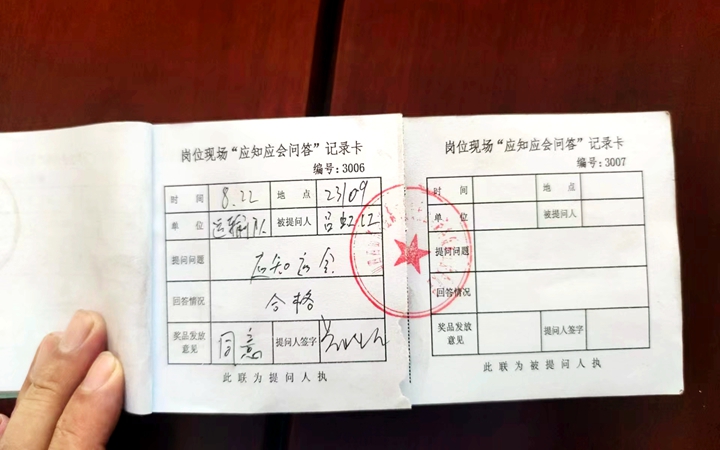 岗位现场“应知应会问答”记录卡
编号：3006
时 间 8.22 地 点 23109
单 位 运输队 被提问人 吕虹江
提问问题 应知应会
回答情况 合格
奖品发放意见 同意 提问人签字
此联为提问人执
岗位现场“应知应会问答”记录卡
编号：3007
时 间 地 点
单 位 被提问人
提问问题
回答情况
奖品发放意见 提问人签字
此联为被提问人执